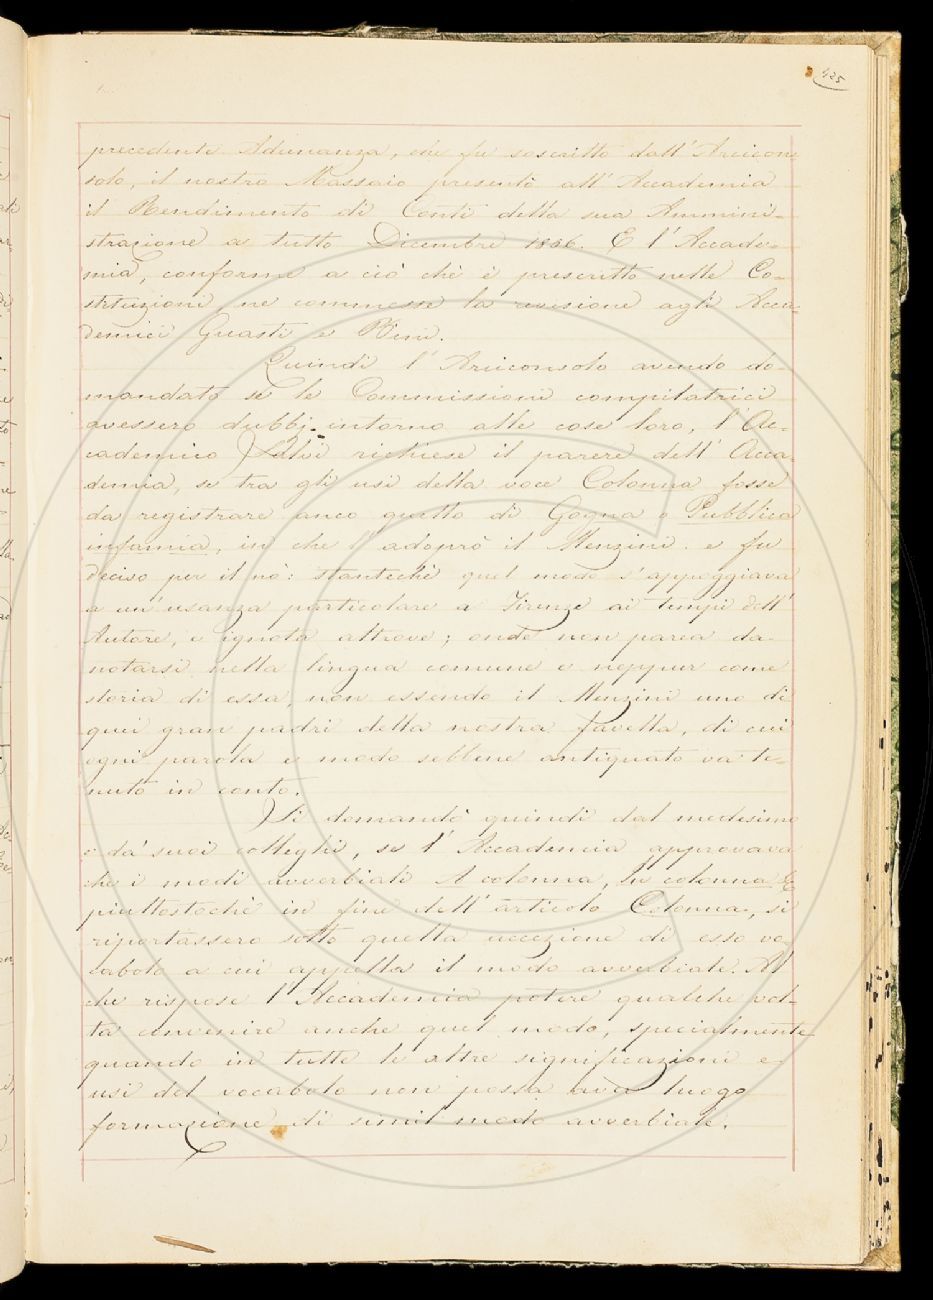 425
precedente Adunanza, che fu soscritto dall'Arcicon-
solo, il nostro Massaio presentò all'Accademia
il Rendimento di Conti della sua Ammini-
strazione a tutto Dicembre 1856. E l'Accade-
mia, conforme a ciò chè è prescritto nelle Co-
stituzioni ne commesse la revisione agli Acca-
demici Guasti e Bini.
Quindi l'Arciconsolo avendo do-
mandato se le Commissioni compilatrici
avessero dubbj intorno alle cose loro, l'Ac-
cademico Salvi richiese il parere dell'Acca-
demia, se tra gli usi della voce Colonna fosse
da registrare anco quello di Gogna o Pubblica
infamia, in che l'adoprò il Menzini. e fu
deciso per il nò: stantechè quel modo s'appoggiava
a un'usanza particolare a Firenze ai tempi dell'
Autore, e ignota altrove; onde non parea da
notarsi nella lingua comune e neppur come
storia di essa, non essendo il Menzini uno di
quei gran padri della nostra favella, di cui
ogni parola e modo sebbene antiquato va te-
nuto in conto.
Si domandò quindi dal medesimo
e da' suoi colleghi, se l'Accademia approvava
che i modi avverbiali A colonna, In colonna &
piuttostochè in fine dell'articolo Colonna, si
riportassero sotto quella accezione di esso vo-
cabolo a cui appella il modo avverbiale. Al
che rispose l'Accademia potere qualche vol-
ta convenire anche quel modo, specialmente
quando in tutte le altre significazioni e
usi del vocabolo non possa aver luogo
formazione di simil modo avverbiale.